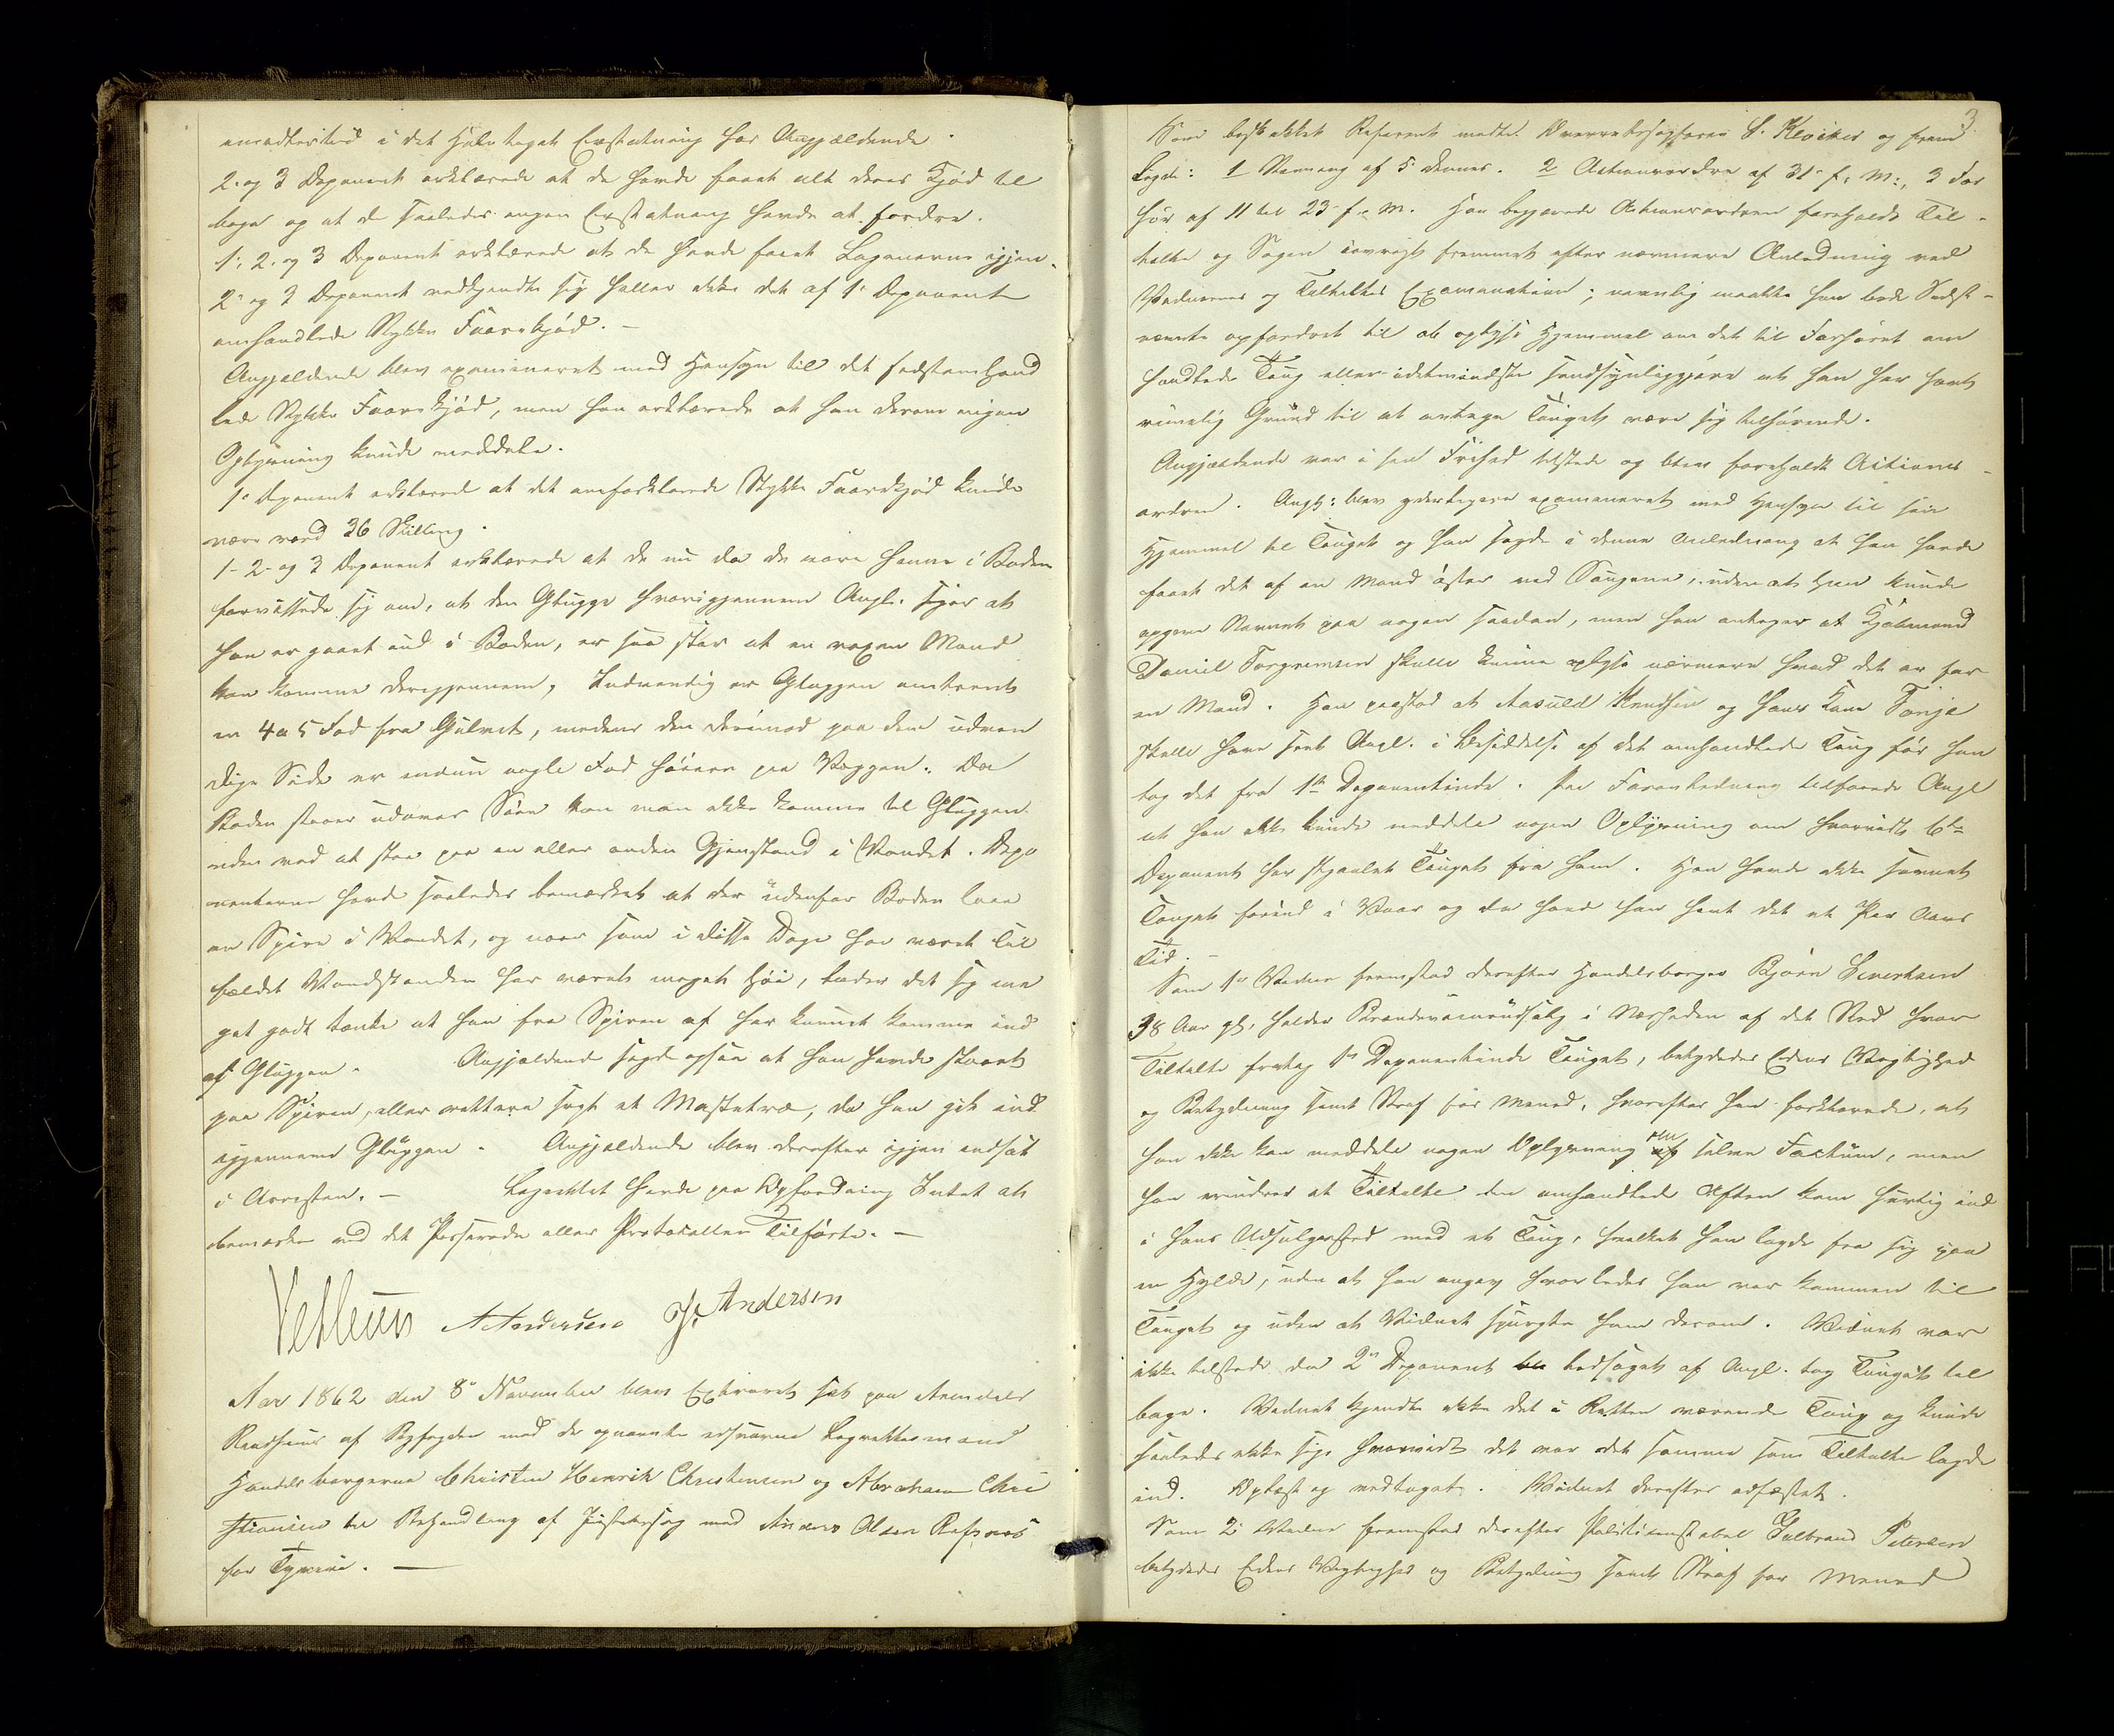 imidlertid i det Hele taget Erstatning hos Angjældende.
2. og 3 Deponent erklærede at de havde faaet alt deres Kjød til
bage og at de saaledes ingen Erstatning havde at fordre.
1, 2. og 3 Deponent erklærede at de havde faaet Laagene igjen.
2. og 3 Deponent vedkjendte sig heller ikke det af 1. Deponent
omhandlede Stykke Faarekjød. –
Angjældende blev examineret med Hensyn til det sidstomhand
lede Stykke Faarekjød, men han erklærede at han derom ingen
Oplysning kunde meddele.
1. Deponent erklærede at det omforklarede Stykke Faarekjød kunde
være værd 36 Skilling.
1. 2. og 3 Deponent erklærede at de nu da de vare henne i Boden
forvissede sig om, at den Glugge hvorigjennem Angl. siger at
han er gaaet ind i Boden, er saa stor at en voxen Mand
kan komme derigjennem. Indvendig er Gluggen omtrent
en 4 a 5 Fod fra Gulvet, medens den derimod paa den udven
dige Side er endnu nogle Fod høiere paa Væggen. Da
Boden staaer udover Søen kan man ikke komme til Gluggen
uden ved at staa paa en eller anden Gjenstand i Vandet. Depo
nenterne havde saaledes bemærket at der udenfor Boden laae
en Spire i Vandet, og naar som i disse Dage har været Til
fældet Vandstanden har været meget høi, lader det sig me
get godt tænke at han fra Spiren af har kunnet komme ind
af Gluggen. Angjældende sagde ogsaa at han havde staaet
paa Spiren, eller rettere sagt et Mastetræ, da han gik ind
igjennem Gluggen. Angjældende blev derefter igjen indsat
i Arresten. – Lagrettet havde paa Opfordring Intet at
bemærke ved det Passerede eller Protokollen Tilførte. –
A Andersen J. Andersen
Aar 1862 den 8. November blev Extraret sat paa Arendals
Raadhuus af Byfogden med de opnævnte edsvorne Lagrettesmænd
Handelsborgerne Christen Henrik Christensen og Abraham Chri
stiansen til Behandling af Justitssag mod Anders Olsen Refsnes
for Tyveri. –
3
Som beskikket Referent mødte Overretssagfører S. Kloiker og frem
lagde: 1 Stævning af 5. dennes. 2 Actionsordre af 31. f. M., 3 For
hør af 11 til 23. f. M. Han begjærede Actionsordren foreholdt Til
talte og Sagen iøvrigt fremmet efter nærmere Anledning ved
Vidnernes og Tiltaltes Examination; navnlig maatte han bede Sidst
nævnte opfordret til at oplyse Hjemmel om det til Forhøret om
handlede Toug eller idetmindste sandsynliggjøre at han har havt
rimelig Grund til at antage Touget være sig tilhørende.
Angjældende var i sin Frihed tilstede og blev foreholdt Actions
ordren. Angj: blev yderligere examineret med Hensyn til sin
Hjemmel til Touget og han sagde i denne Anledning at han havde
faaet det af en Mand øster ved Saugene, uden at han kunde
opgive Navnet paa nogen saadan, men han antager at Kjøbmand
Daniel Torgrimsen skulle kunne oplyse nærmere hvad det er for
en Mand. Han paastod at Aasuld Knudsen og hans Kone Tonje
skulle have seet Angl. i Besiddelse af det omhandlede Toug før han
tog det fra 1ste Deponentinde. Paa Foranledning tilføiede Angl
at han ikke kunde meddele nogen Oplysning om hvorvidt 6te
Deponent har stjaalet Touget fra ham. Han havde ikke savnet
Touget forend i Vaar og da havde han havt det et Par Aars
Tid. –
Som 1ste Vidne fremstod derefter Handelsborger Bjørn Sivertsen
38 Aar gl, holder Brændeviinsudsalg i Nærheden af det Sted hvor
Tiltalte fratog 1ste Deponentinde Touget, betydedes Edens Vigtighed
og Betydning samt Straf for Meened, hvorefter han forklarede, at
han ikke kan meddele nogen Oplysning om selve Factum, men
han erindrer at Tiltalte den omhandlede Aften kom hurtig ind
i hans Udsalgssted med et Toug, hvilket han lagde fra sig paa
en Hylde, uden at han angav hvorledes han var kommen til
Touget og uden at Vidnet spurgte ham derom. Vidnet var
ikke tilstede da 2den Deponent ledsaget af Angl. tog Touget til
bage. Vidnet kjendte ikke det i Retten værende Toug og kunde
saaledes ikke sige hvorvidt det var det samme som Tiltalte lagde
ind. Oplæst og vedtaget. Vidnet derefter edfæstet.
Som 2. Vidne fremstod derefter Politikonstabel Gulbrand Petersen
betydedes Edens Vigtighed og Betydning samt Straf for Meened